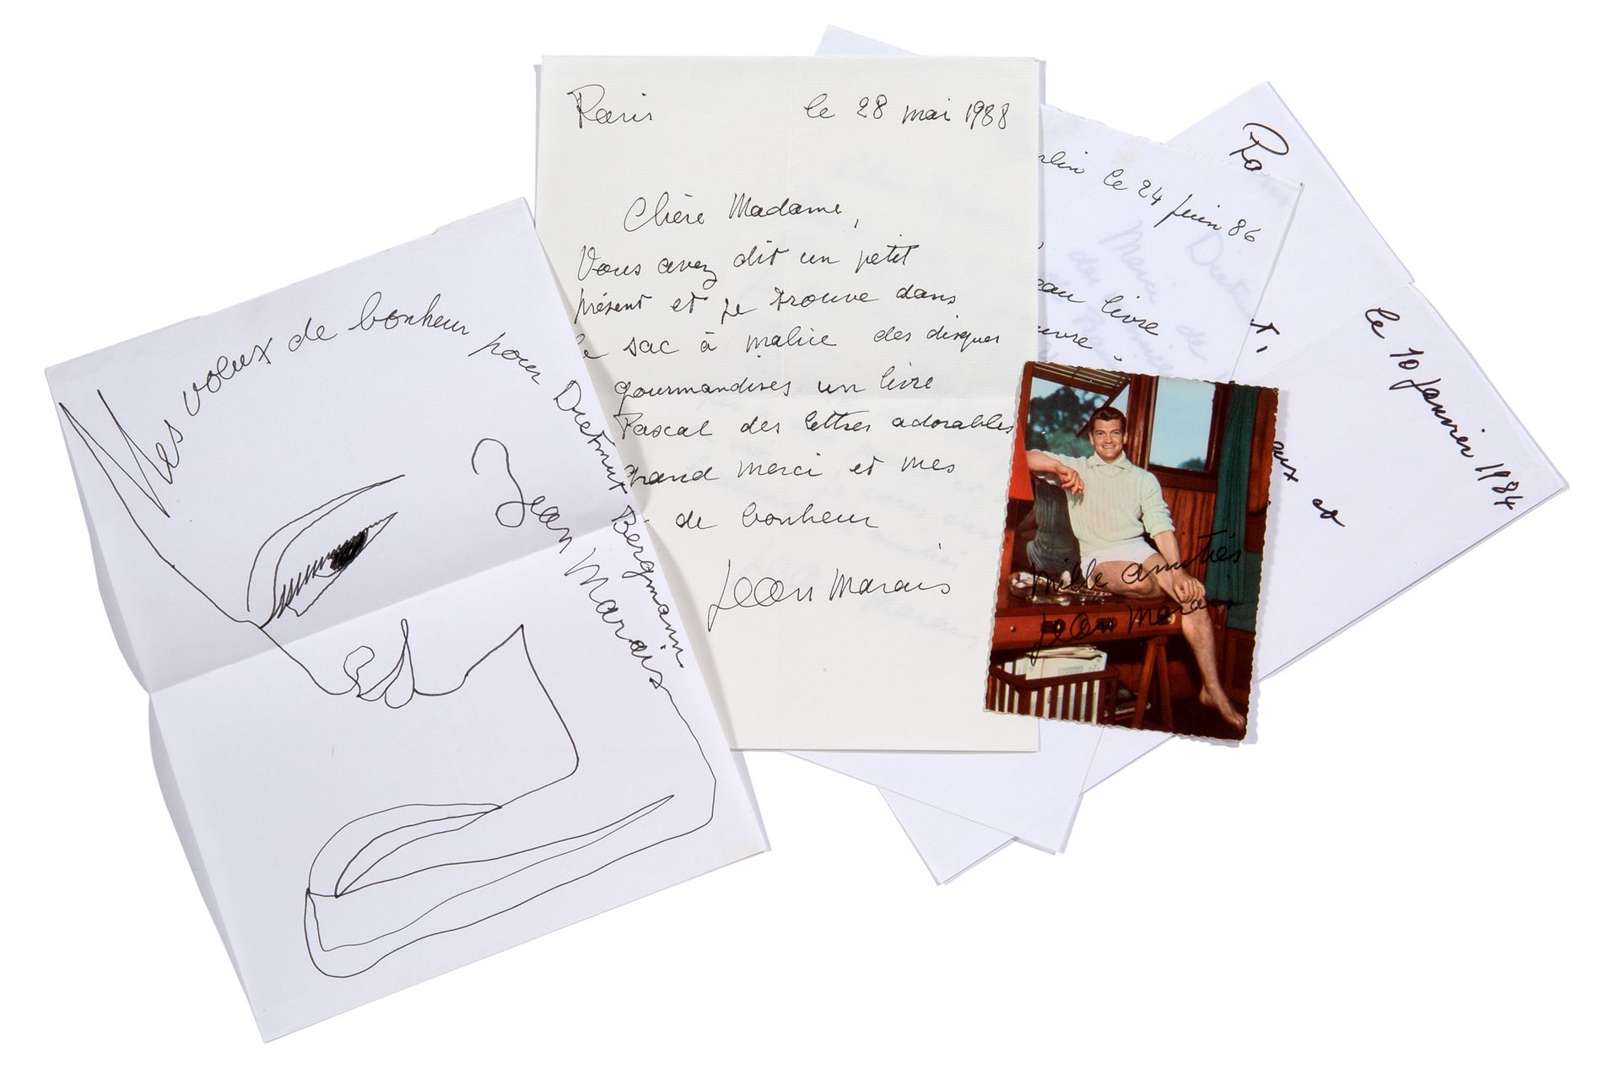 Mes voeux de bonheur pour Dietmar Bergmann
Jean Marais
Paris le 28 mai 1988
Chère Madame,
Vous avez dit un petit
présent et je trouve dans
sac à malice des disques
gourmandises un livre
Pascal des lettres adorables
merci et mes
de bonheur
Jean Marais
le 24 juin 86
livre
Mille amitiés
Jean Marais
le 10 janvier 1984
et